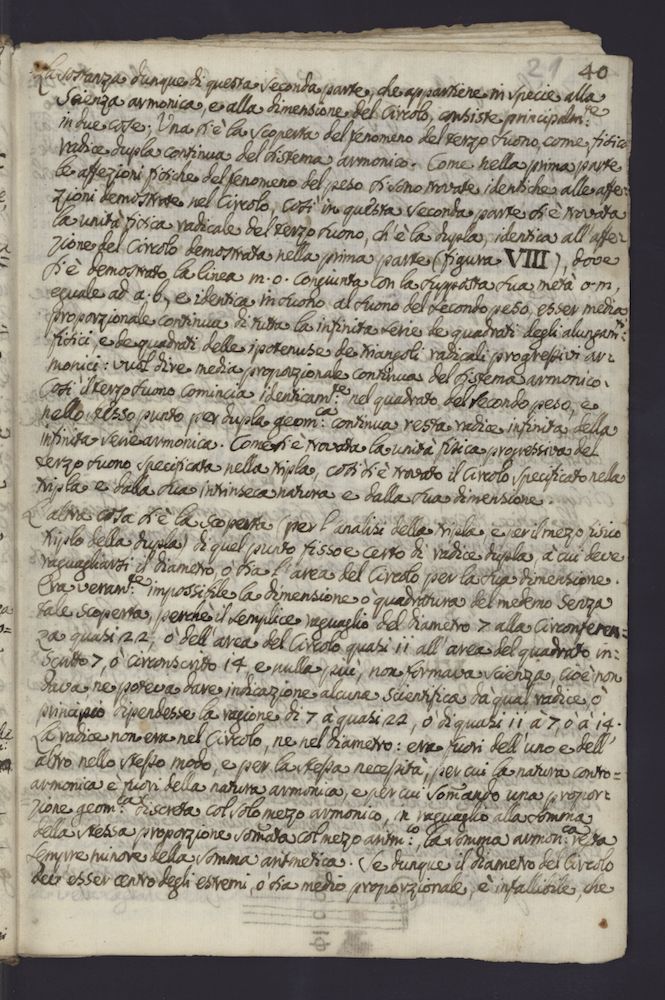 21 40
La sostanza dunque di questa seconda parte, che appartiene in specie alla
Scienza armonica, e alla dimensione del Circolo, consiste principalm:te
in due cose; Una si è la scoperta del fenomeno del terzo suono, come fisica
radice dupla continua del sistema armonico. Come nella prima parte
le affezioni fisiche del fenomeno del peso si sono trovate identiche alle affe-
zioni demostrate nel Circolo, così in questa seconda parte si è trovata
la unità fisica radicale del terzo suono, ch'è la dupla, identica all'affe-
zione del Circolo demostrata nella prima parte (figura VIII), dove
si è demostrato la linea m. o. congiunta con la supposta sua metà o-m,
eguale ad a. b, e identica in suono al suono del secondo peso, esser media
proporzionale continua di tutta la infinita serie de quadrati degli alungam:ti
fisici, e de quadrati delle ipotenuse de triangoli radicali progressivi ar-
monici: vuol dire media proporzionale continua del sistema armonico.
Così il terzo suono comincia identicam:te nel quadrato del secondo peso, e
nello stesso punto per dupla geom:ca continua resta radice infinita della
infinita serie armonica. Come si è trovata la unità fisica progressiva del
terzo suono specificata nella tripla, così si è trovato il Circolo specificato nella
tripla e dalla sua intrinseca natura e dalla sua dimensione.
L'altra cosa si è la scoperta (per l'analisi della tripla, e per il mezo fisico
triplo della dupla) di quel punto fisso e certo di radice dupla, à cui deve
raguagliarsi il diametro o sia l'area del Circolo per la sua dimensione.
Era veram:te impossibile la dimensione o quadratura del medemo senza
tale scoperta, perchè il semplice raguaglio del diametro 7 alla Circonferen-
za quasi 22, ò dell'area del Circolo quasi 11 all'area del quadrato in-
scritto 7, ò circonscritto 14 e nulla più, non formava scienza, cioè non
dava ne poteva dare indicazione alcuna scientifica da qual radice, ò
principio dipendesse la ragione di 7 a quasi 22, ò di quasi 11 a 7, ò à 14.
La radice non era nel Circolo, ne nel diametro: era fuori dell'uno e dell'
altro nello stesso modo, e per la stessa necessità, per cui la natura contro=
armonica è fuori della natura armonica, e per cui somando una propor-
zione geom:ca discreta col solo mezo armonico, in raguaglio alla somma
della stessa proporzione somata col mezo aritm:co, la somma armon:ca resta
sempre minore della somma aritmetica. Se dunque il diametro del Circolo
deve esser centro degli estremi, ò sia medio proporzionale, è infallibile, che